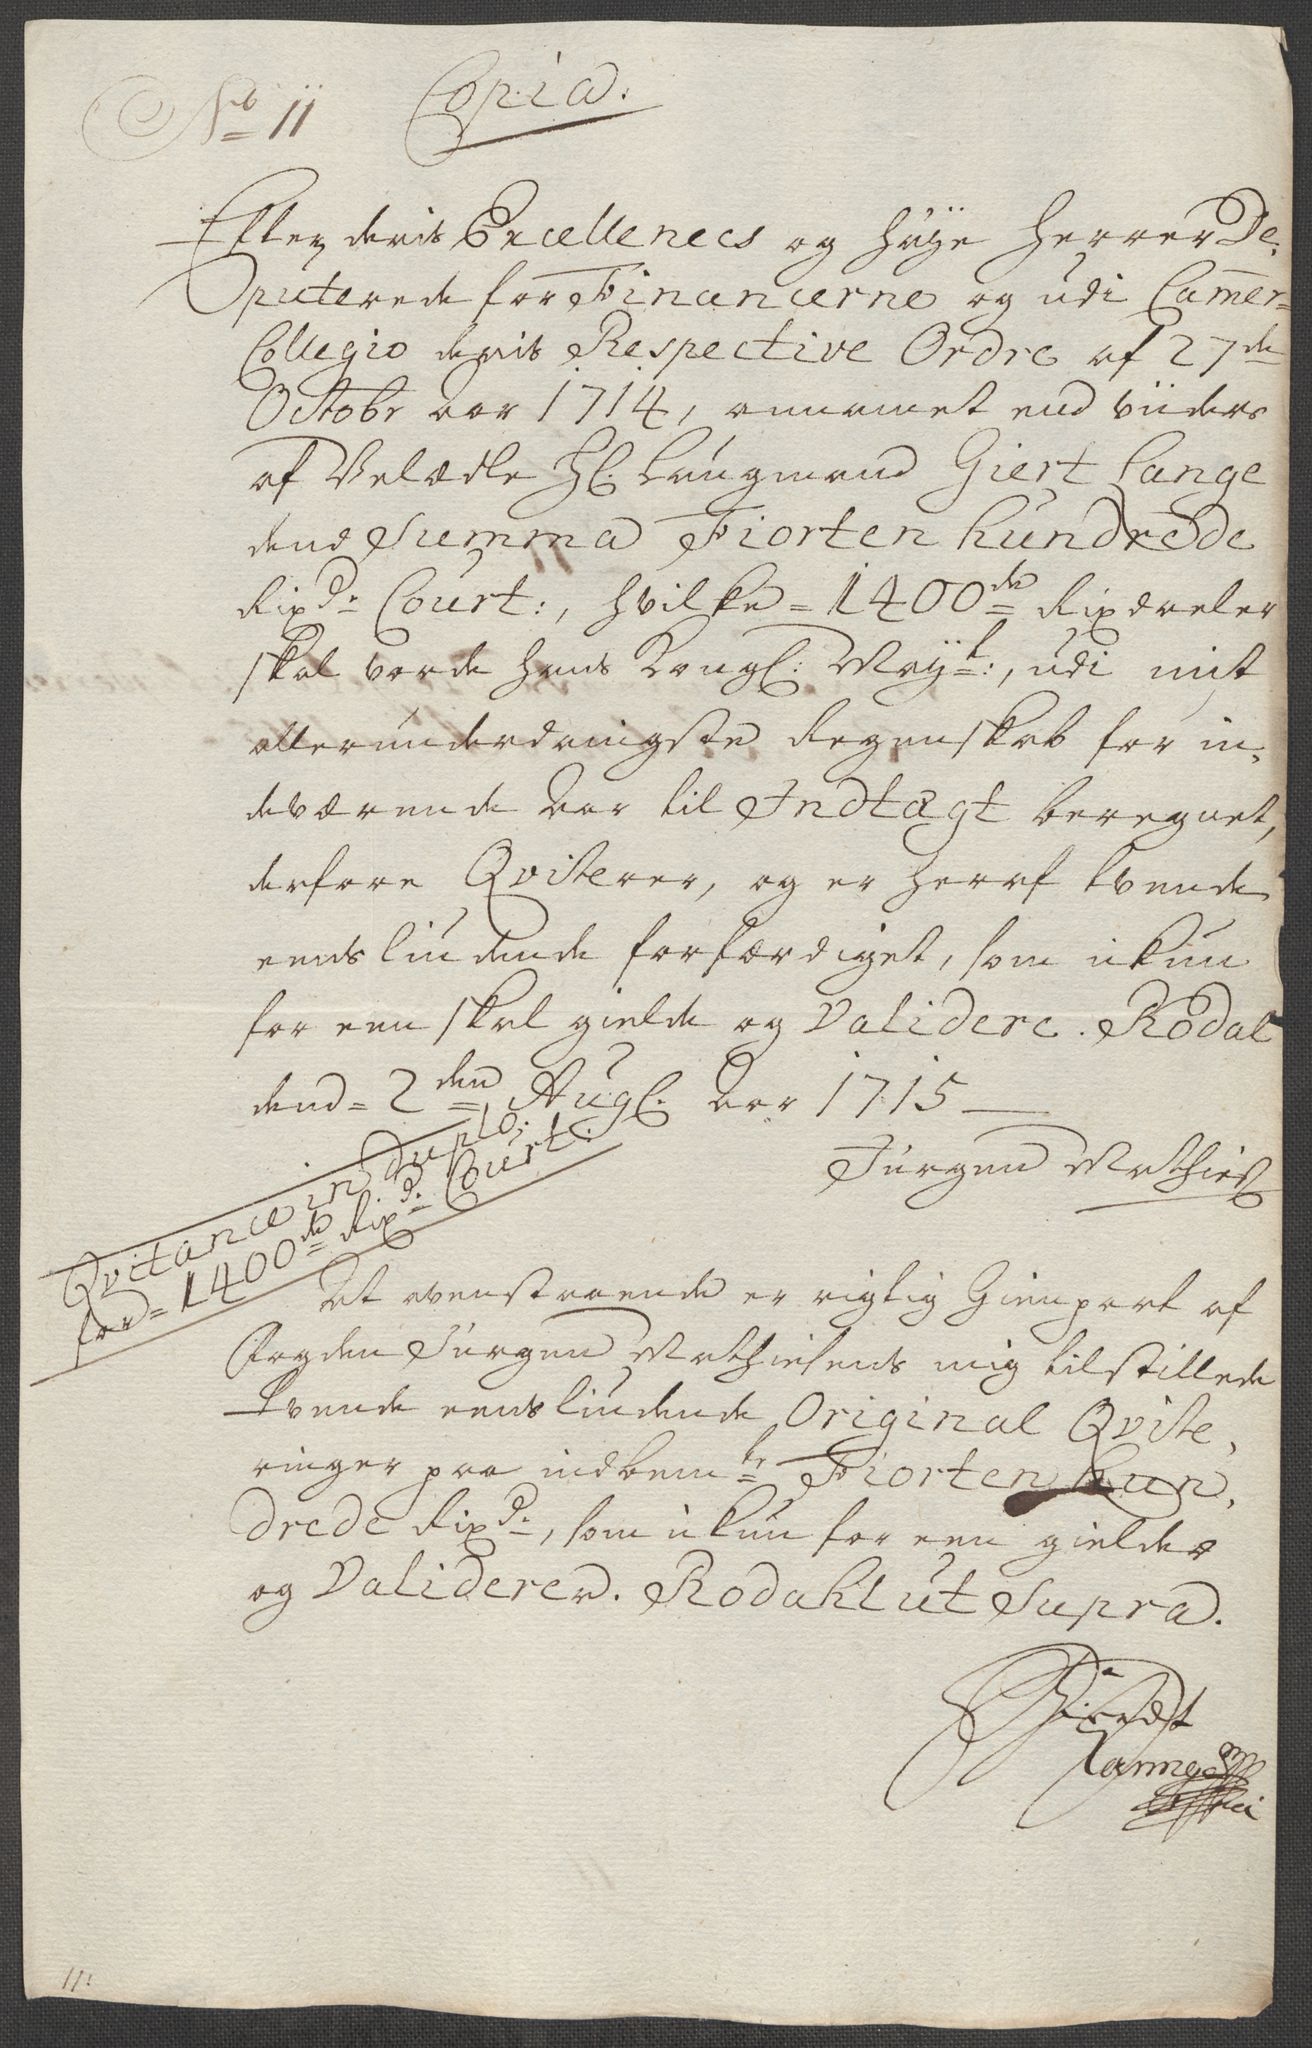 No 11 Copia.
Efter deris Excellencs og høye Herrer De,
puterede for Financerne og udi Camer=
Collegio deris Respective Ordre af 27de
Octobr aar 1714, annamet
af Velædle Hl. Laugmand Giert Lange
dend Summa Fiorten hundrede
Rixdr Court:, hvilke = 1400de Rixdaeler
skal vorde hans Kongl: Mayt:, udi mit
allerunderdanigste Regenskab for in,
deværende Aar til Indtægt beregnet,
derfore Qviterer, og er heraf tvende
eensliudende forfærdiget, som ikun
for een skal gielde og Validere. Rødal
dend = 2den Augl. Aar 1715
Jürgen Mathies
Qvitance in Duplo:
for = 1400de Rixdr Court:
At ovenstaaende er rigtig Gienpart af
Fogden Jürgen Mathiesens mig tilstillede
tvende eensliudende Original Qvite,
ringer paa indbemte Fiorten hun,
drede Rixdr, som ikun for een gielder
og Validerer. Rødahl ut Supra.
Giert
Lange
11: